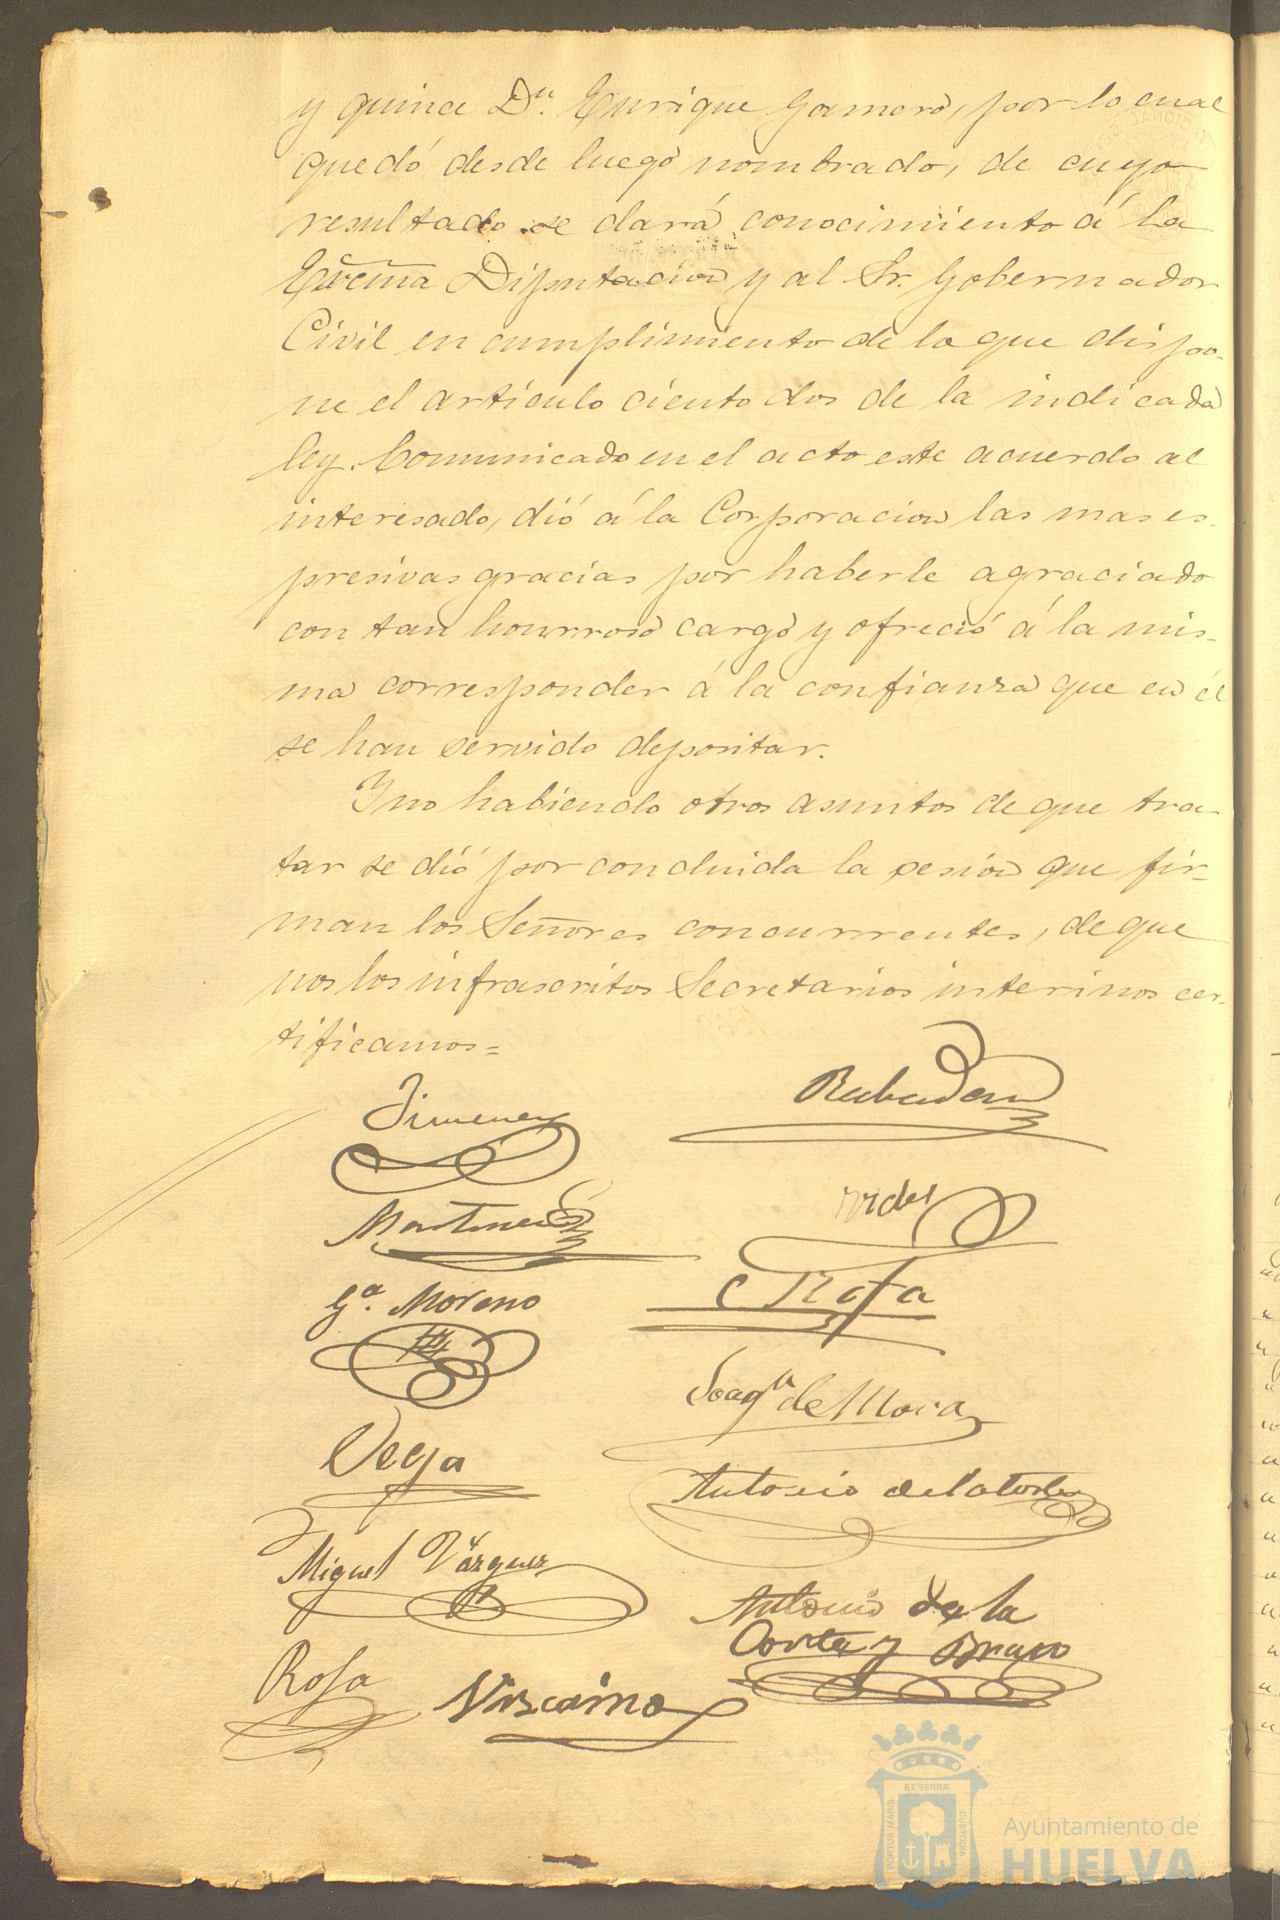 y quince Dn. Enrique Gamero, por lo cual
quedó desde luego nombrado, de cuyo
resultado se dará conocimiento á la
Excma Diputacion y al Sr. Gobernador
Civil en cumplimiento de lo que dispo-
ne el artículo ciento dos de la indicada
ley. Comunicado en el acto este acuerdo al
interesado, dió á la Corporacion las mas es-
presivas gracias por haberle agraciado
con tan honrroso cargo y ofreció á la mis-
ma corresponder á la confianza que en él
se han servido depositar.
Y no habiendo otros asuntos de que tra-
tar se dió por concluida la sesion que fir-
man los Señores concurrentes, de que
nos los infrascritos Secretarios interinos cer-
tificamos=
Jimenez
Rabadan
Martinez
Ga. Moreno
Joaqn de Mora
Vega
Antonio de la torre
Miguel Vázquez
Antonio de la
Corte y Bravo
Rofa
Vizcaino
ET TERRÆ
PORTUS MARIS
CUSTODIA
Ayuntamiento de
HUELVA